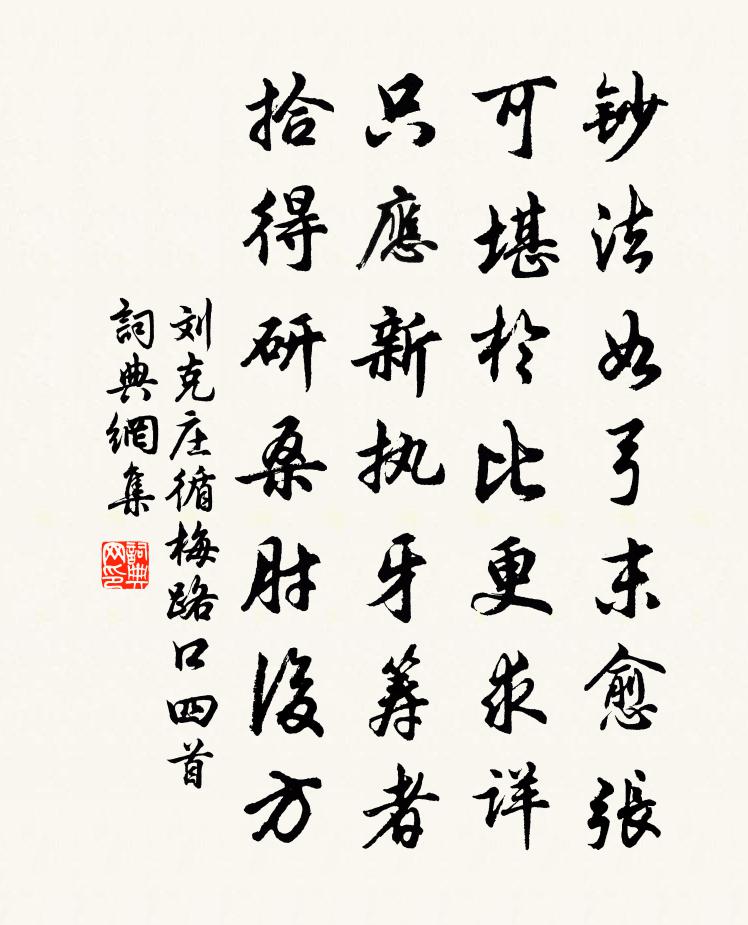 鈔法如弓末愈張
可堪於比更求详
只應新执牙筹者
拾得研桑肘後方
刘克庄循梅路口四首
詞典網集
詞典网印